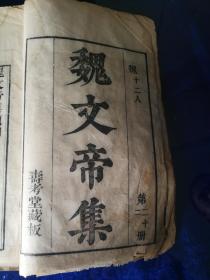 魏十二人
魏文帝集
第二十册
壽考堂藏板